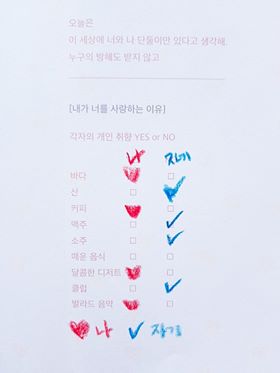 오늘은
이 세상에 너와 나 단둘이만 있다고 생각해.
누구의 방해도 받지 않고
[내가 너를 사랑하는 이유]
각자의 개인 취향 YES or NO
나 자기
바다
산
커피
맥주
소주
매운 음식
달콤한 디저트
클럽
발라드 음악
나 자기